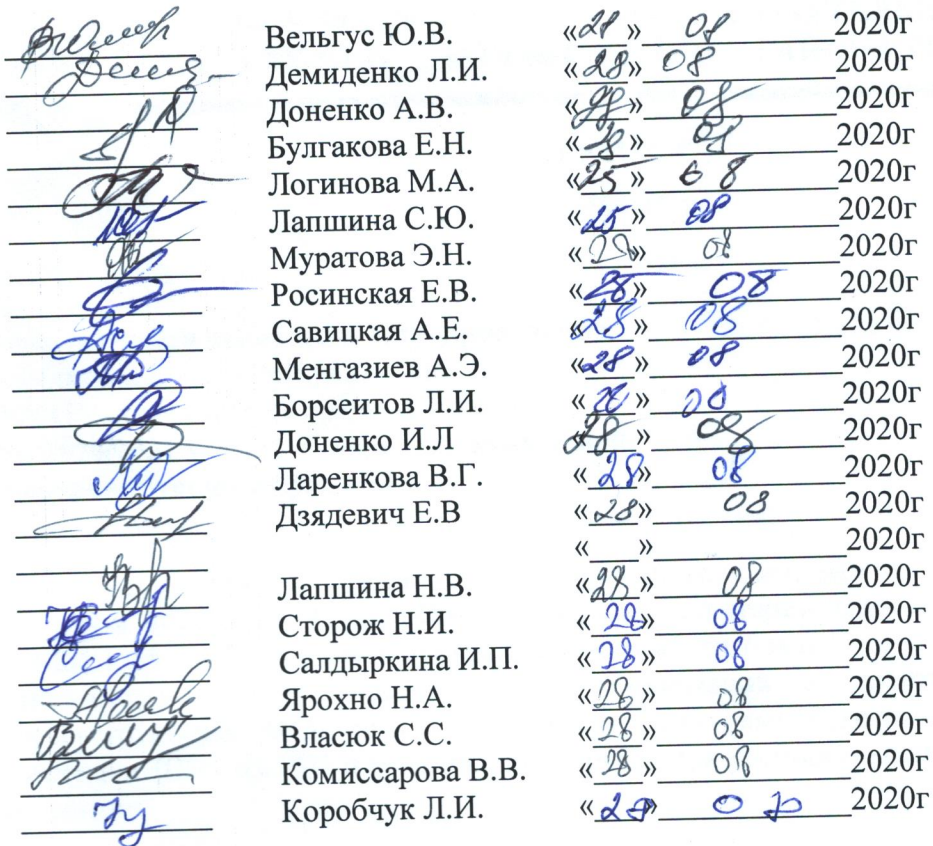 Вельгус Ю.В. «28» 08 2020г
Демиденко Л.И. «28» 08 2020г
Доненко А.В. «28» 08 2020г
Булгакова Е.Н. «28» 08 2020г
Логинова М.А. «25» 08 2020г
Лапшина С.Ю. «25» 08 2020г
Муратова Э.Н. «28» 08 2020г
Росинская Е.В. «28» 08 2020г
Савицкая А.Е. «28» 08 2020г
Менгазиев А.Э. «28» 08 2020г
Борсеитов Л.И. «28» 08 2020г
Доненко И.Л «28» 08 2020г
Ларенкова В.Г. «28» 08 2020г
Дзядевич Е.В «28» 08 2020г
« » 2020г
Лапшина Н.В. «28» 08 2020г
Сторож Н.И. «28» 08 2020г
Салдыркина И.П. «28» 08 2020г
Ярохно Н.А. «28» 08 2020г
Власюк С.С. «28» 08 2020г
Комиссарова В.В. «28» 08 2020г
Коробчук Л.И. « » 2020г